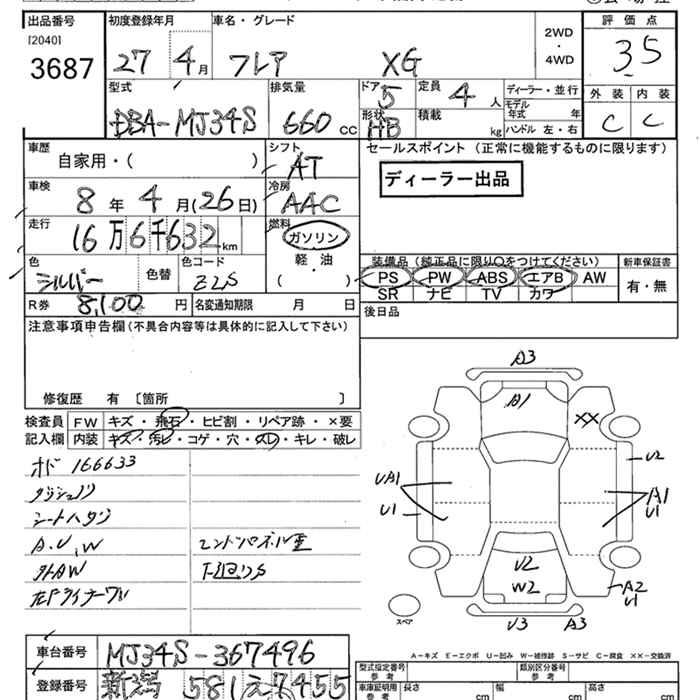 出品番号 初度登録年月 車名・グレード 2WD・4WD 評価点
[2040]
3687 27 4月 フレア XG 3.5
型式 排気量 ドア 定員 ディーラー・並行 外装 内装
DBA-MJ34S 660 cc 5 4人 モデル年式 年 C C
形状 HB 積載 kg ハンドル 左・右
車歴 シフト セールスポイント (正常に機能するものに限ります)
自家用・( ) AT
車検 冷房 ディーラー出品
8年 4月(26日) AAC
走行 燃料
16万6千632km ガソリン
色 色替 色コード 軽・油 装備品 (純正品に限り○をつけてください) 新車保証書
シルバー Z2S ( ) PS PW ABS エアB AW 有・無
R券 8,100円 名変通知期限 月 日 SR ナビ TV カワ
注意事項申告欄(不具合内容等は具体的に記入して下さい) 後日品
修復歴 有 〔箇所 〕
検査員 FW キズ・飛石・ヒビ割・リペア跡・×要
記入欄 内装 キズ・汚レ・コゲ・穴・スレ・キレ・破レ
オド 166633
シートハタン
A.U,W
外AW
エンドパネル歪
下廻りS
A3
A1
XX
U2
UA1
U1
A1
U1
U2
W2
A2
U1
スペア
U3 A3
A-キズ E-エクボ U-凹み W-補修跡 S-サビ C-腐食 XX-交換済
車台番号 MJ34S-367496
型式指定番号 参考 類別区分番号 参考
登録番号 新潟 581 え 7455
車庫証明用 参考 長さ cm 幅 cm 高さ cm